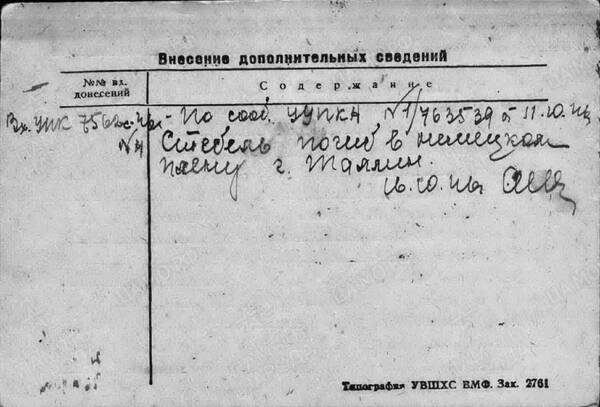 Внесение дополнительных сведений
№№ вх. донесений
Содержание
Вх. УПК 756
По сооб. УУПКА №1/763539 от 11.10.46
№4 Стебель погиб в немецком
плену г. Таллин.
16.10.46
Типография УВШХС ВМФ. Зак. 2761